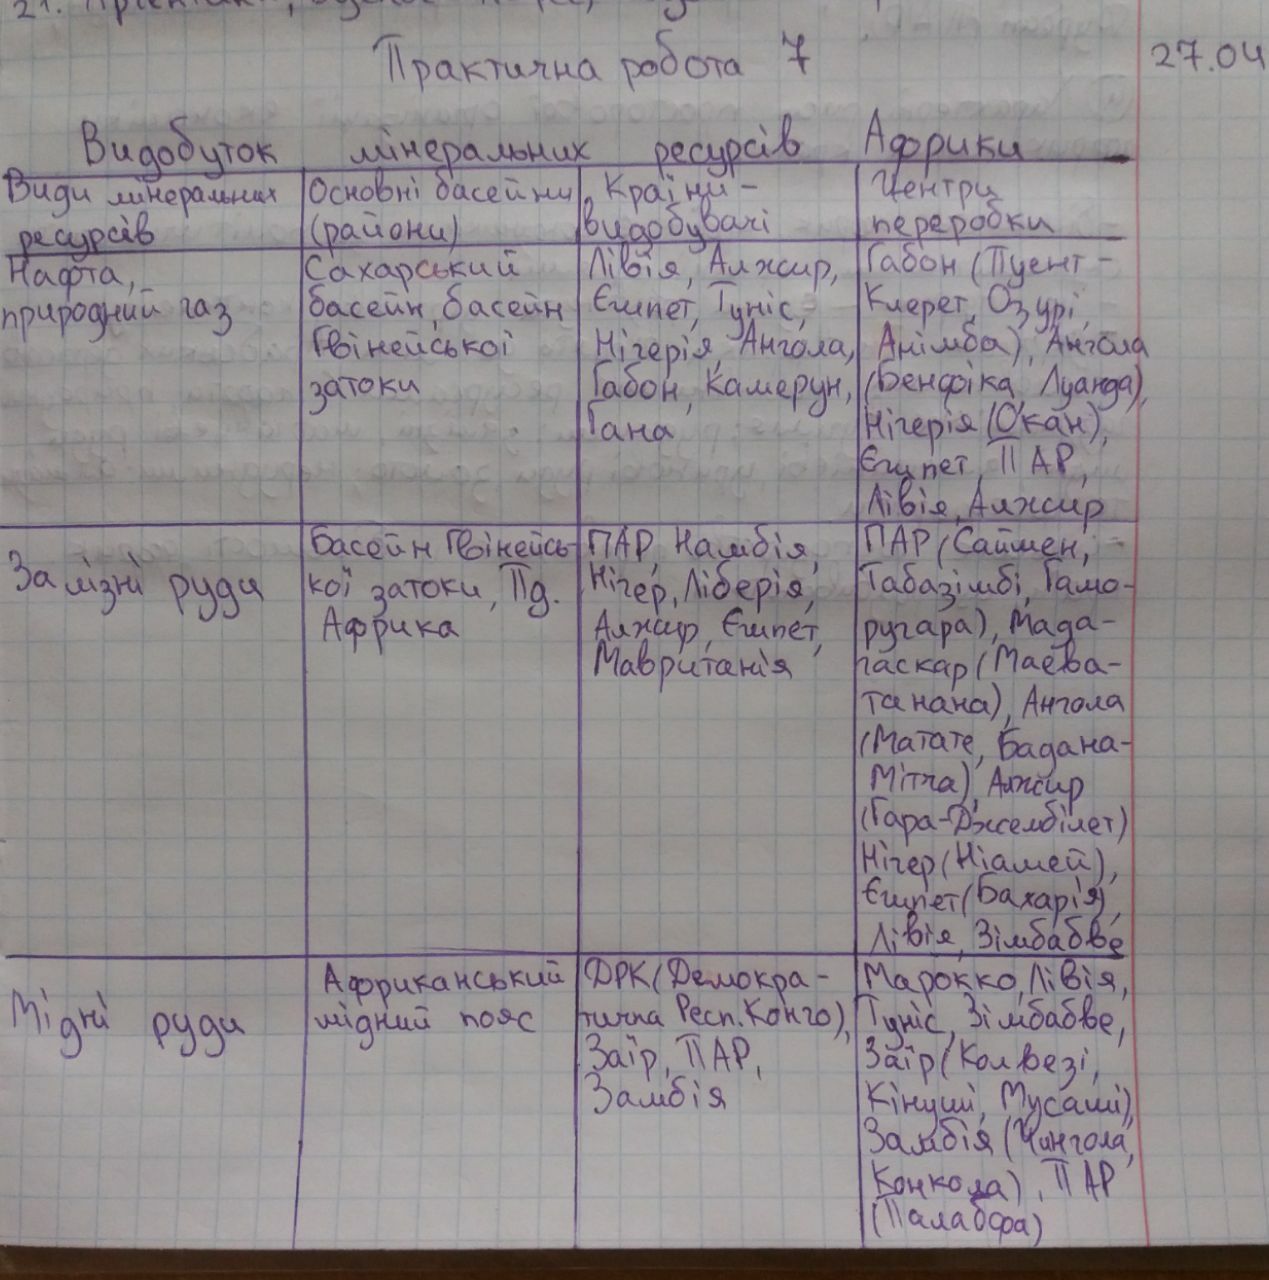 Практична робота 7
27.04
Видобуток мінеральних ресурсів Африки
Види мінеральних
ресурсів
Основні басейни
(райони)
Країни-
видобувачі
Центри
переробки
Нафта,
природний газ
Сахарський
басейн, басейн
Гвінейської
затоки
Лівія, Алжир,
Єгипет, Туніс,
Нігерія, Ангола,
Габон, Камерун,
Гана
Габон (Пуент-
Клерет, Озурі,
Анімба), Ангола
(Бенфіка, Луанда),
Нігерія (Окан),
Єгипет, ПАР,
Лівія, Алжир
Залізні руди
Басейн Гвінейсь-
кої затоки, Пд.
Африка
ПАР, Намбія,
Нігер, Ліберія,
Алжир, Єгипет,
Мавританія
ПАР (Саймен,
Табазімбі, Гамо-
ругара), Мада-
гаскар (Маева-
танана), Ангола
(Матате, Бадана-
Мітча), Алжир
(Гара-Джембілет)
Нігер (Ніамей),
Єгипет (Бахарія),
Лівія, Зімбабве
Мідні руди
Африканський
мідний пояс
ДРК (Демокра-
тична Респ. Конго),
Заїр, ПАР,
Замбія
Марокко, Лівія,
Туніс, Зімбабве,
Заїр (Колвезі,
Кінуші, Мусаші),
Замбія (Чингола,
Конкола), ПАР
(Палабфа)